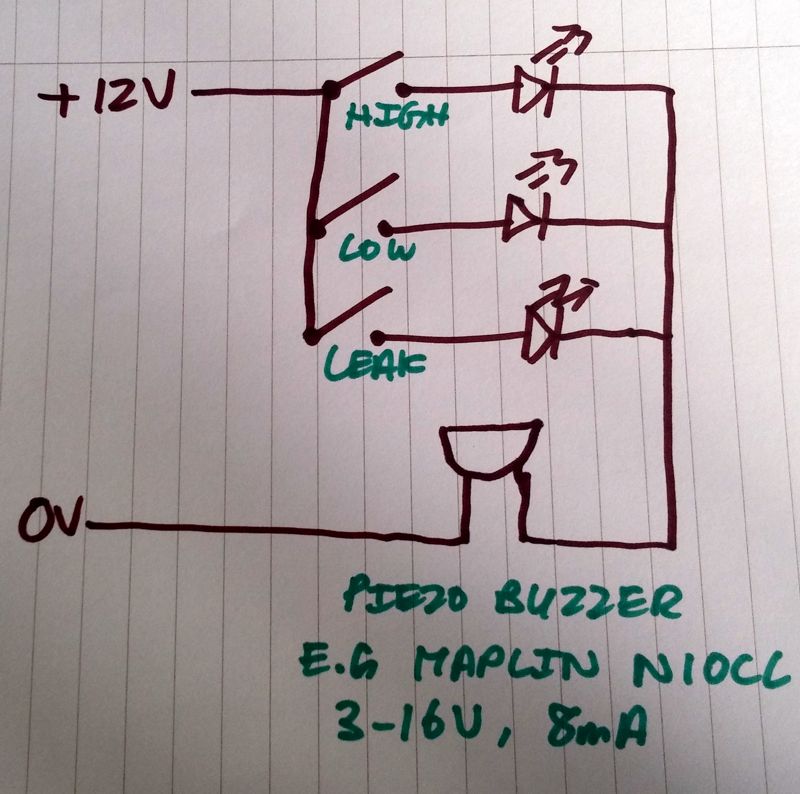 +12V
HIGH
LOW
LEAK
0V
PIEZO BUZZER
E.G MAPLIN N10CL
3-16V, 8mA